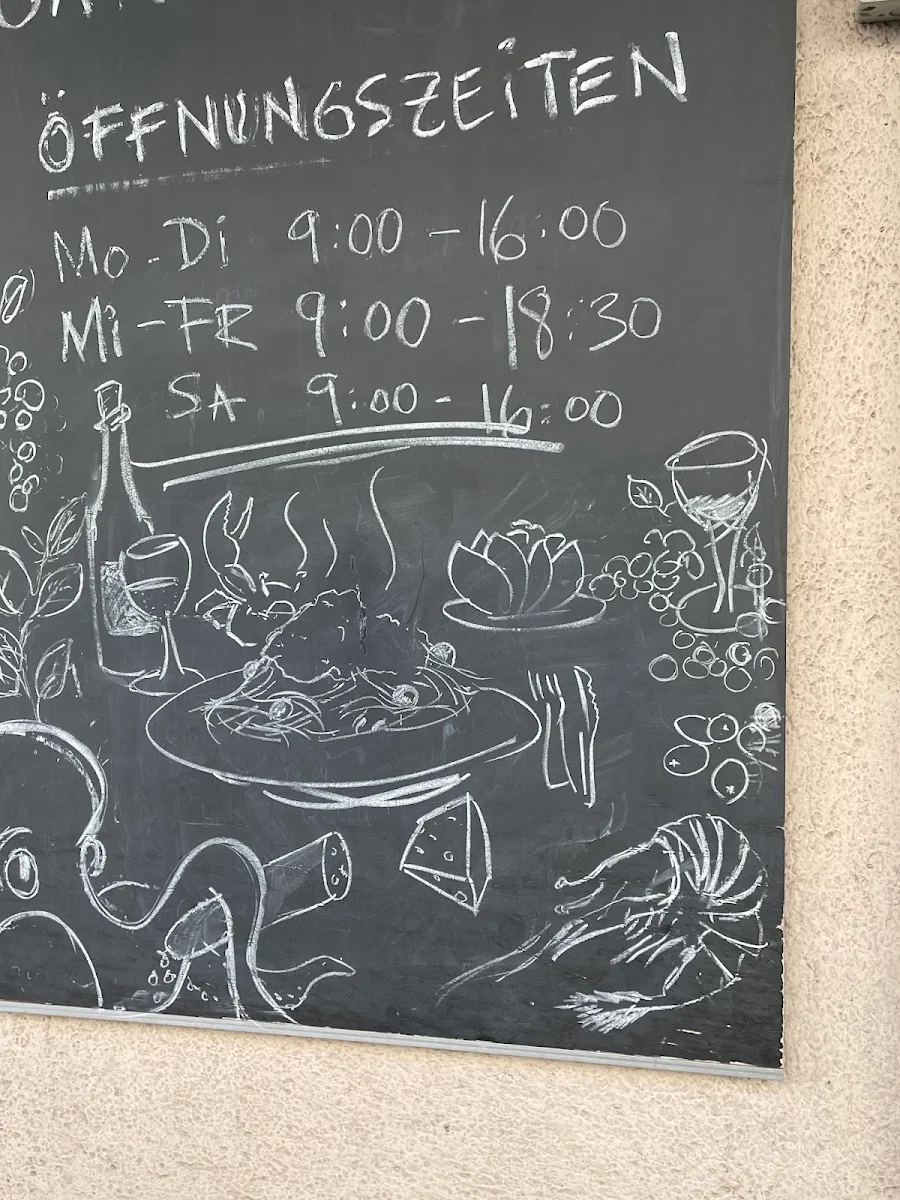 ÖFFNUNGSZEITEN
Mo-Di 9:00-16:00
Mi-FR 9:00-18:30
SA 9:00-16:00